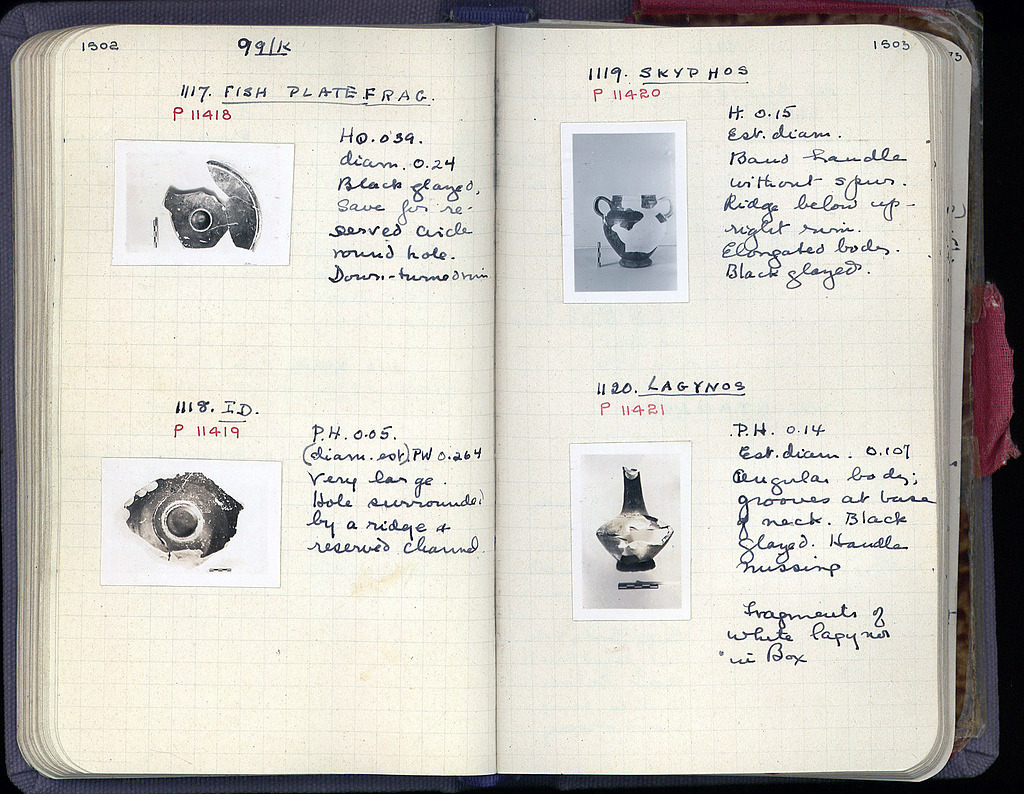 1502
99/K
1117. FISH PLATE FRAG.
P 11418
H 0.039.
diam. 0.24
Black glazed,
save for re-
served circle
round hole.
Down-turned rim
1118. ID.
P 11419
P.H. 0.05.
(diam. est.) PW 0.264
Very large.
Hole surrounded
by a ridge &
reserved channel.
1503
1119. SKYPHOS
P 11420
H. 0.15
Est. diam.
Band handle
without spur.
Ridge below up-
right rim.
Elongated body.
Black glazed.
1120. LAGYNOS
P 11421
P.H. 0.14
Est. diam. 0.107
Angular body;
grooves at base
of neck. Black
glazed. Handle
missing
Fragments of
white lagynos
in Box